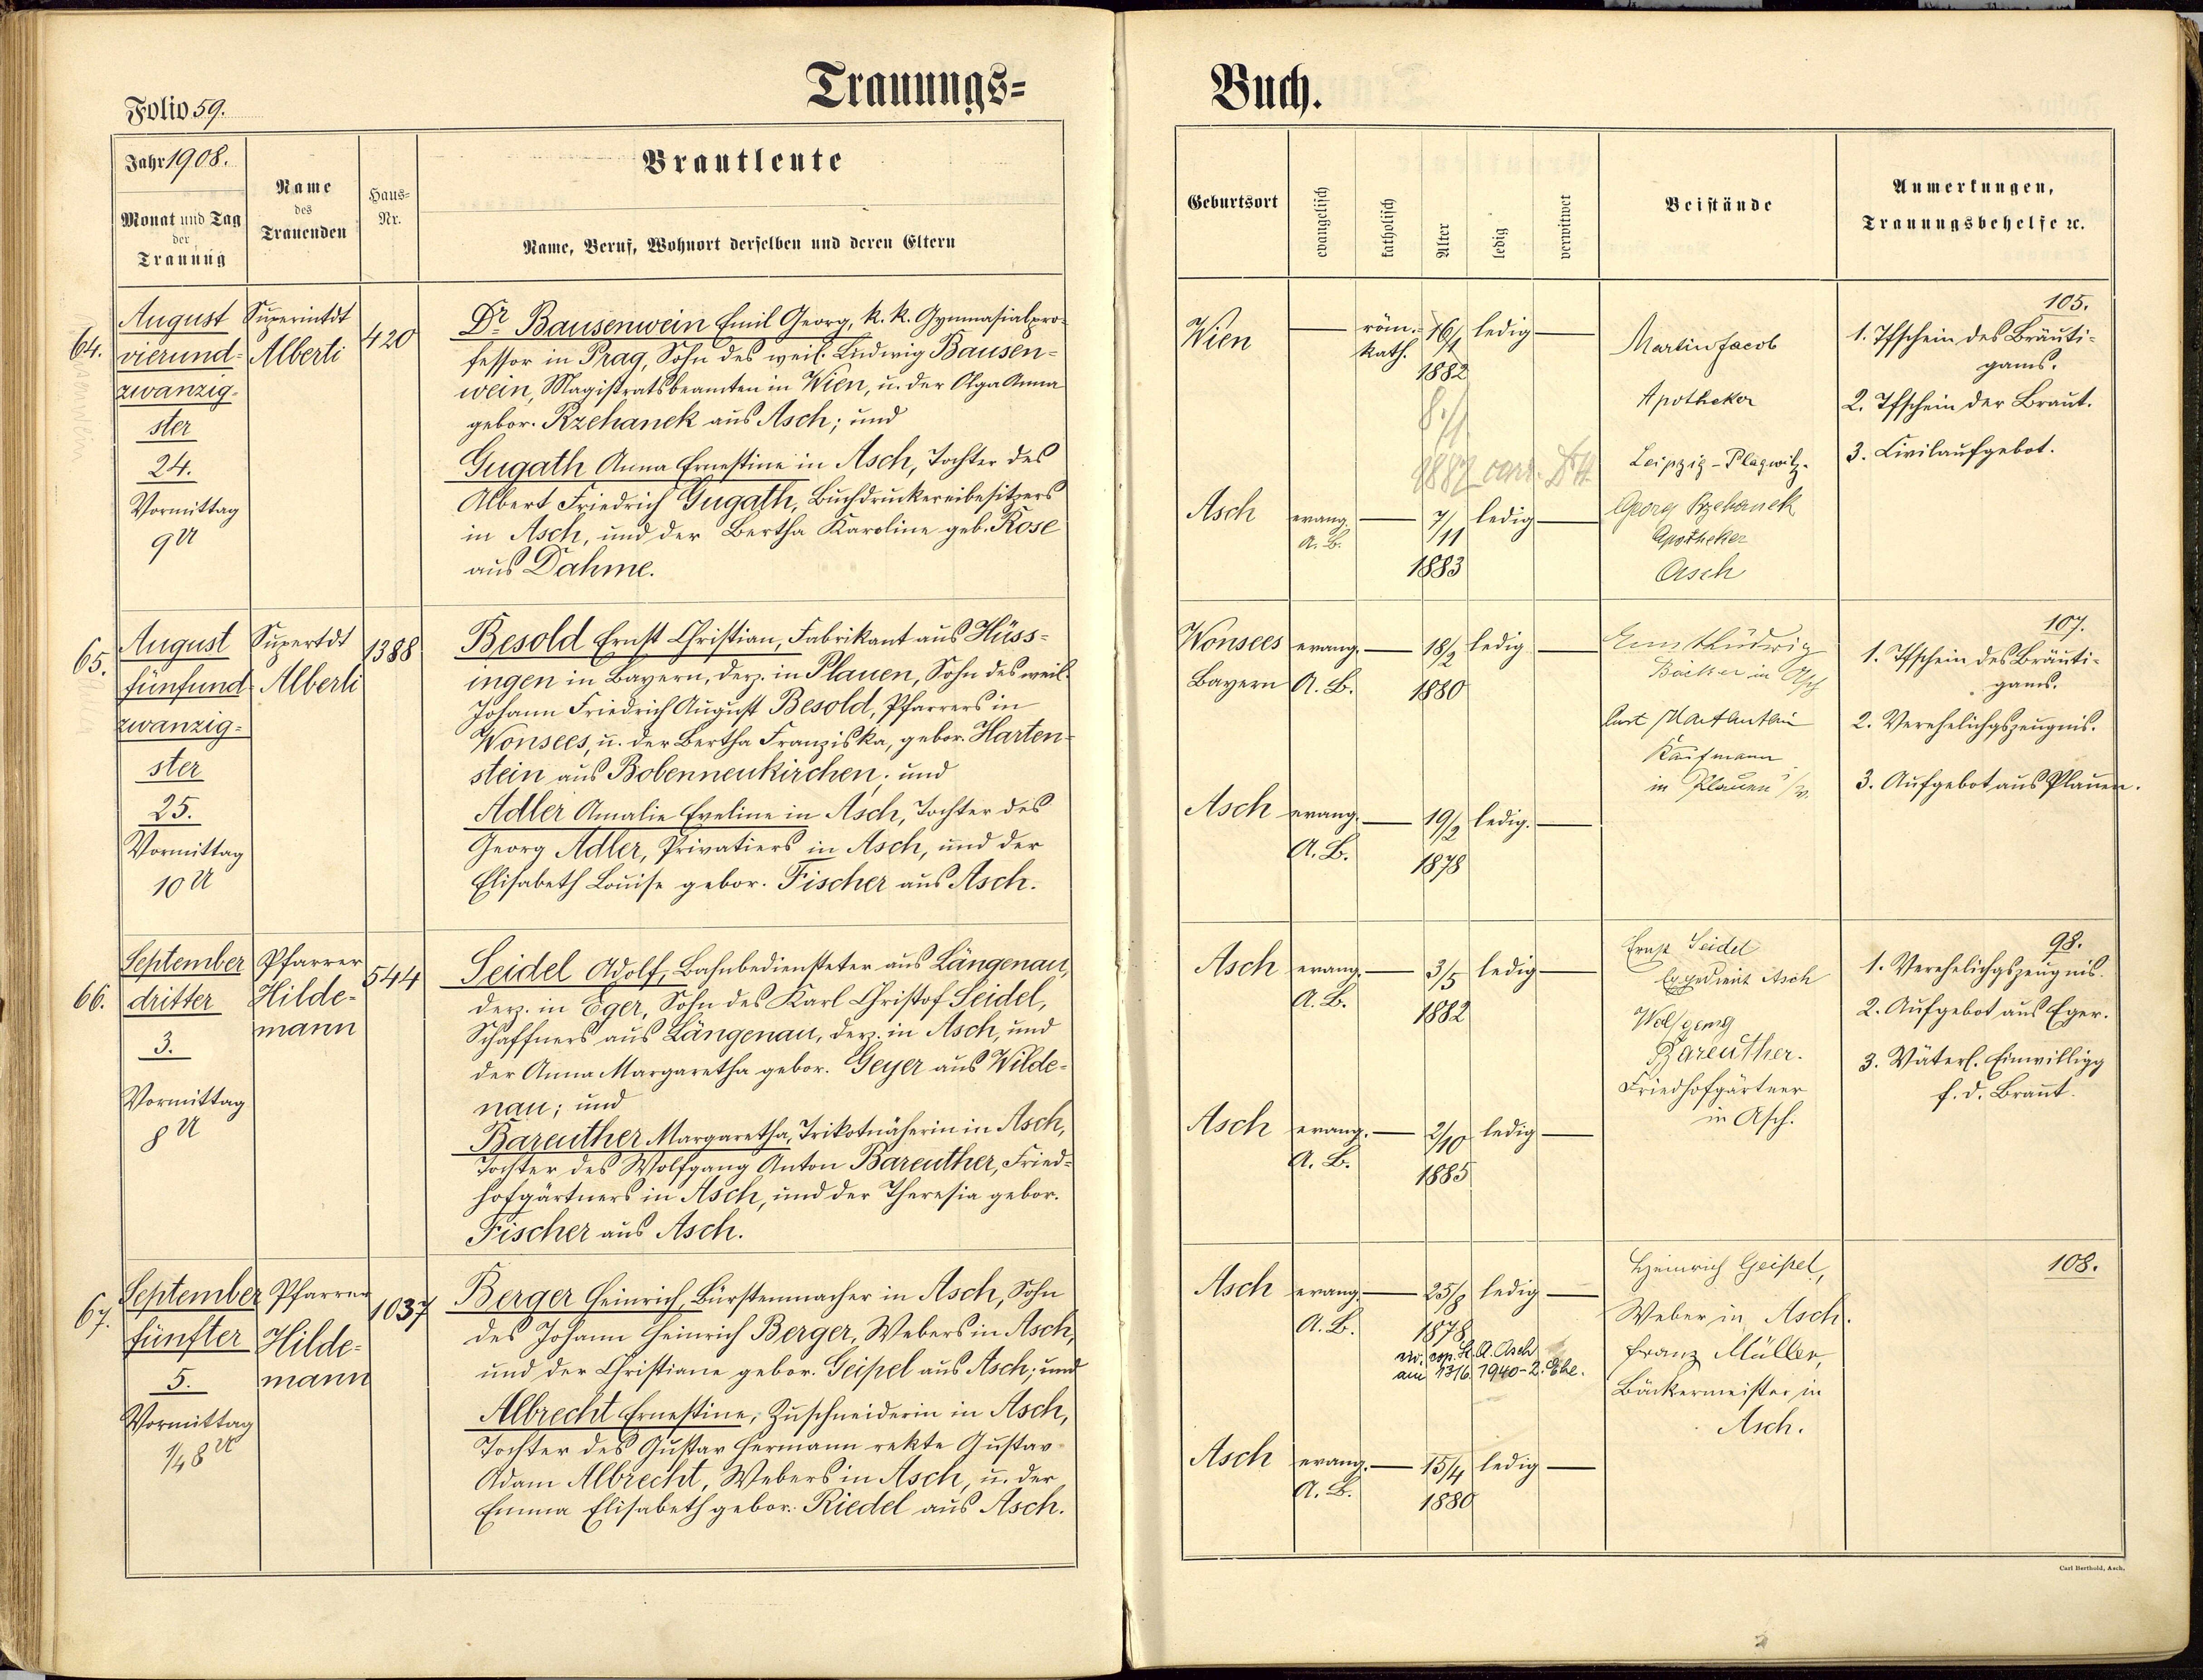 Trauungs=
Buch.
Folio 59.
Jahr 1908.
Monat und Tag
der
Trauung
Name
des
Trauenden
Haus=
Nr.
Brautleute
Name, Beruf, Wohnort derselben und deren Eltern
Geburtsort
evangelisch
katholisch
Alter
ledig
verwitwet
Beistände
Anmerkungen,
Trauungsbehelfe ꝛc.
64.
August
vierund=
zwanzig=
ster
24.
Vormittag
9 U
Superintdt
Alberti
420
Dr. Bausenwein Emil Georg, k. k. Gymnasialpro=
fessor in Prag, Sohn des weil. Ludwig Bausen=
wein, Magistratsbeamten in Wien, u. der Olga Anna
gebor. Rzehanek aus Asch; und
Gugath Anna Ernestine in Asch, Tochter des
Albert Friedrich Gugath, Buchdruckereibesitzers
in Asch, und der Bertha Karoline geb. Rose
aus Dahme.
Wien
röm.=
kath.
16/1
1882
ledig
8./1
1882
Asch
evang.
A. B.
7/11
1883
ledig
Martin Jacob
Apotheker
Leipzig-Plagwitz.
Georg Rzehanek
Apotheker
Asch
105.
1. Tfschein des Bräuti=
gams.
2. Tfschein der Braut.
3. Civilaufgebot.
65.
August
fünfund=
zwanzig=
ster
25.
Vormittag
10 U
Supertdt
Alberti
1388
Besold Ernst Christian, Fabrikant aus Hüss=
ingen in Bayern, derz. in Plauen, Sohn des weil.
Johann Friedrich August Besold, Pfarrers in
Wonsees, u. der Bertha Franziska, gebor. Harten=
stein aus Bobenneukirchen; und
Adler Amalie Eveline in Asch, Tochter des
Georg Adler, Privatiers in Asch, und der
Elisabeth Louise gebor. Fischer aus Asch.
Wonsees
Bayern
evang.
A. B.
18/2
1880
ledig
Asch
evang.
A. B.
19/2
1878
ledig.
Ernst Ludwig
Bäcker in Asch
Kaufmann
in Plauen i/V.
107.
1. Tfschein des Bräuti=
gams.
2. Verehelichgszeugnis.
3. Aufgebot aus Plauen.
66.
September
dritter
3.
Vormittag
8 U
Pfarrer
Hilde=
mann
544
Seidel Adolf, Bahnbediensteter aus Längenau,
derz. in Eger, Sohn des Karl Christof Seidel,
Schaffners aus Längenau, derz. in Asch, und
der Anna Margaretha gebor. Geyer aus Wilde=
nau; und
Bareuther Margaretha, Trikotnäherin in Asch,
Tochter des Wolfgang Anton Bareuther, Fried=
hofgärtners in Asch, und der Theresia gebor.
Fischer aus Asch.
Asch
evang.
A. B.
3/5
1882
ledig
Asch
evang.
A. B.
2/10
1885
ledig
Ernst Seidel
Expedient Asch
Wolfgang
Bareuther.
Friedhofgärtner
in Asch.
98.
1. Verehelichgszeugnis.
2. Aufgebot aus Eger.
3. Väterl. Einwilligg
f. d. Braut.
67.
September
fünfter
5.
Vormittag
1/4 8 U
Pfarrer
Hilde=
mann
1037
Berger Heinrich, Bürstenmacher in Asch, Sohn
des Johann Heinrich Berger, Webers in Asch,
und der Christiane gebor. Geipel aus Asch; und
Albrecht Ernestine, Zuschneiderin in Asch,
Tochter des Gustav Hermann rekte Gustav
Adam Albrecht, Webers in Asch, u. der
Emma Elisabeth gebor. Riedel aus Asch.
Asch
evang.
A. B.
25/8
1878
ledig
civ. cop. St. A. Asch
am 13/6 1940 - 2. Ehe.
Asch
evang.
A. B.
15/4
1880
ledig
Heinrich Geipel,
Weber in Asch.
Franz Müller,
Bäckermeister in
Asch.
108.
Carl Berthold, Asch.